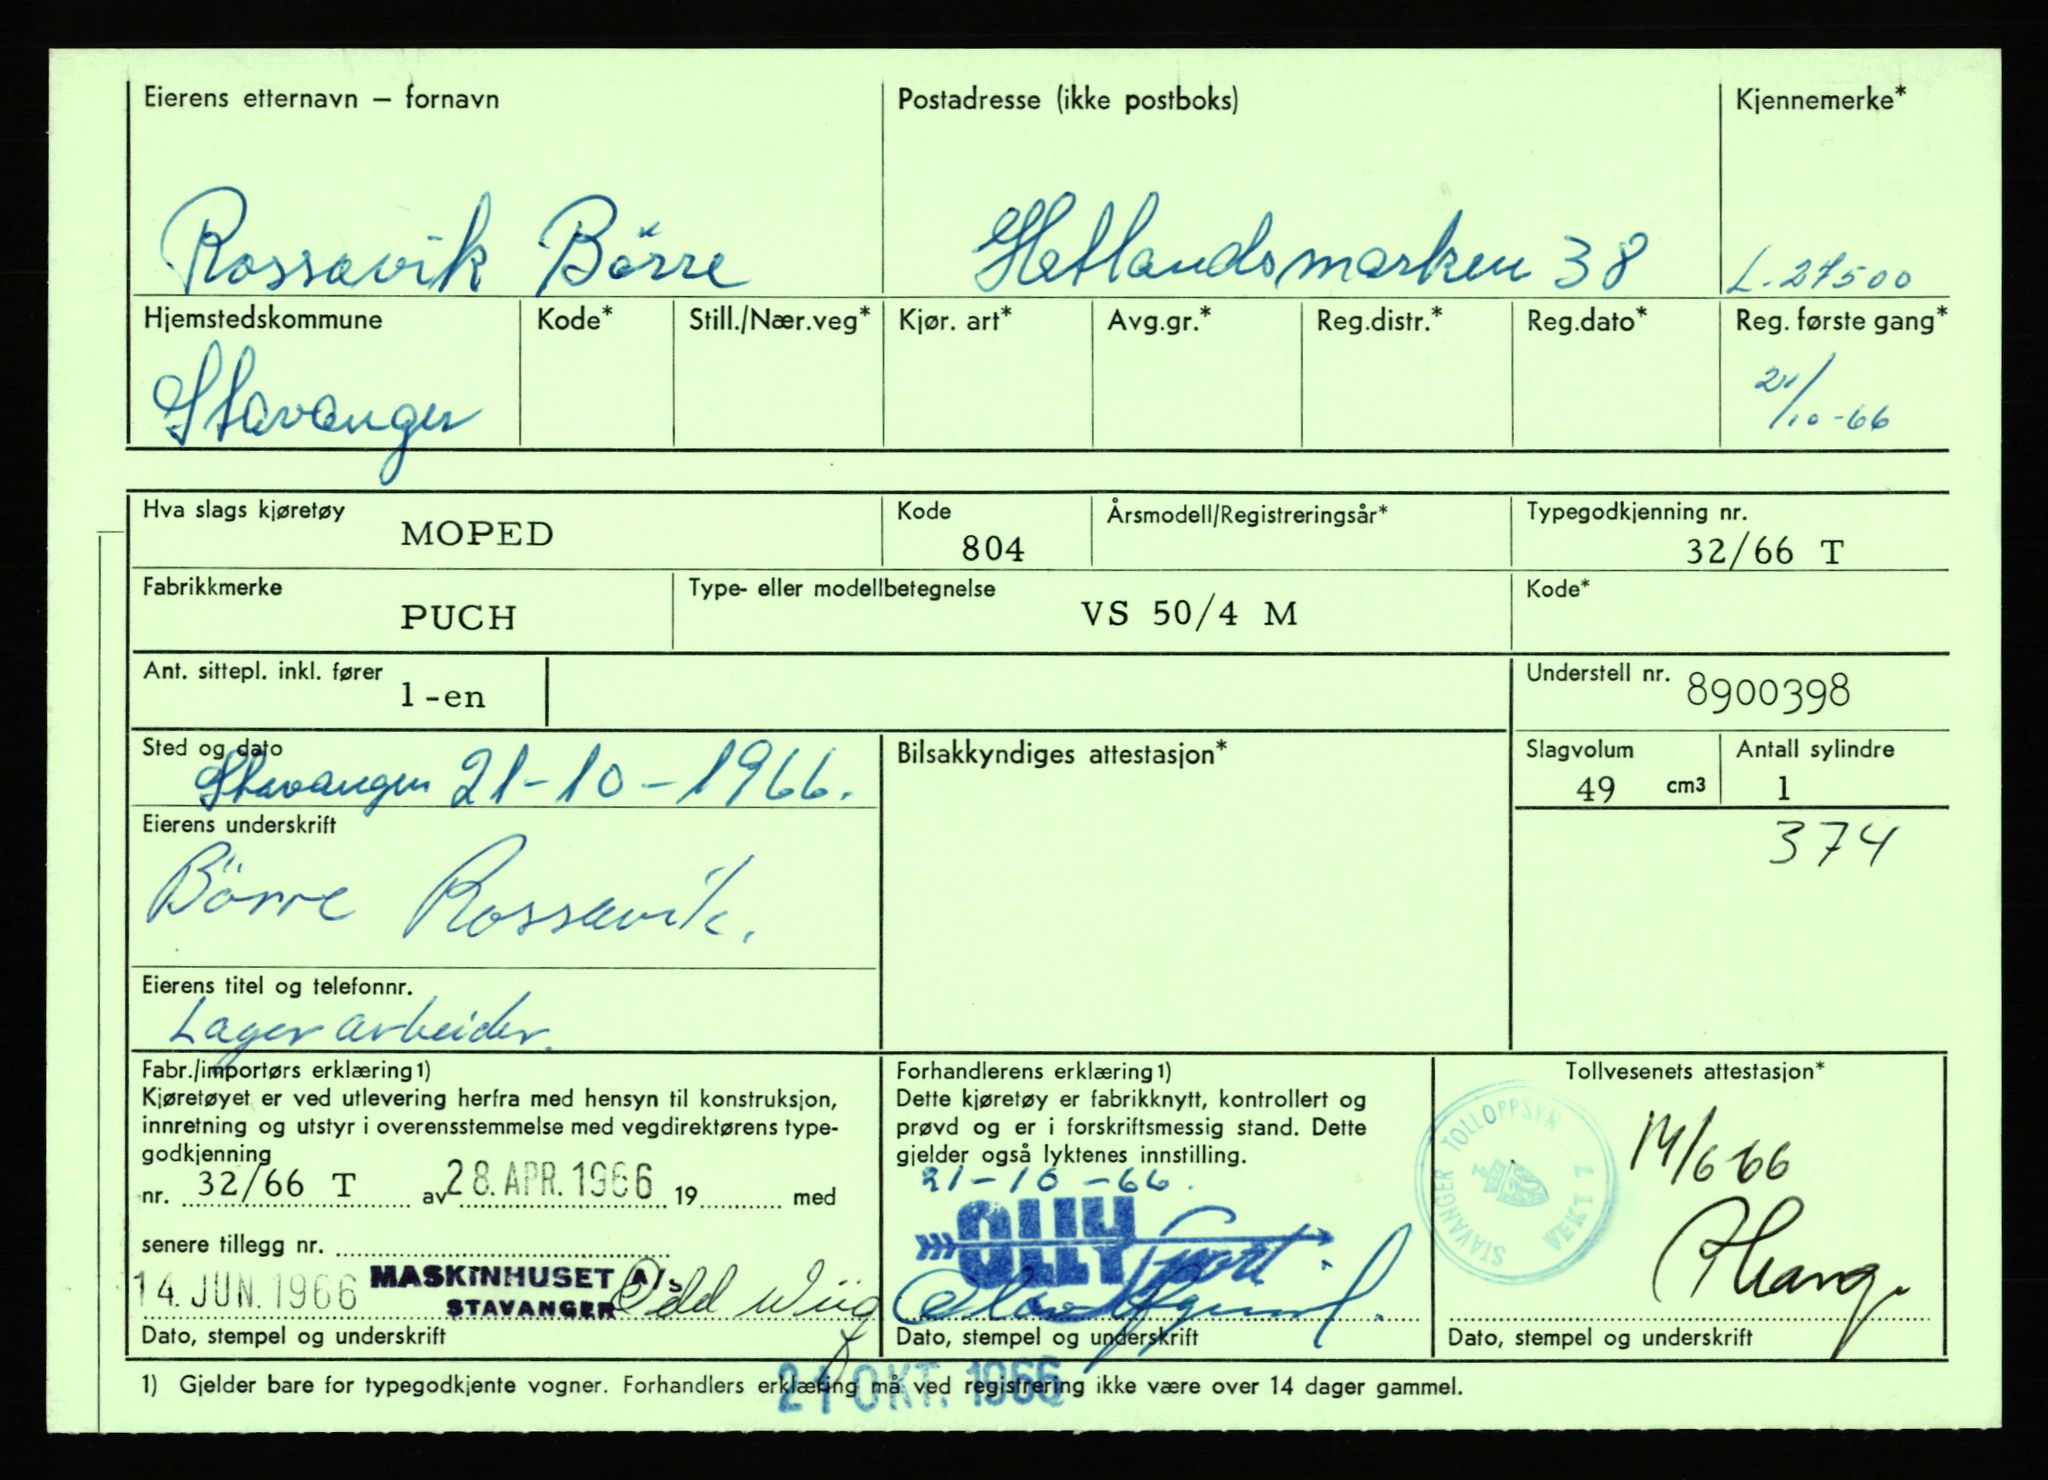 Eierens etternavn – fornavn
Postadresse (ikke postboks)
Kjennemerke*
Rossavik Börre
Hetlandsmarken 38
L-27500
Hjemstedskommune
Kode*
Still./Nær.veg*
Kjør. art*
Avg.gr.*
Reg.distr.*
Reg.dato*
Reg. første gang*
Stavanger
21/10-66
Hva slags kjøretøy
MOPED
Kode
804
Årsmodell/Registreringsår*
Typegodkjenning nr.
32/66 T
Fabrikkmerke
PUCH
Type- eller modellbetegnelse
VS 50/4 M
Kode*
Ant. sittepl. inkl. fører
1-en
Understell nr.
8900398
Sted og dato
Stavanger 21-10-1966.
Bilsakkyndiges attestasjon*
Slagvolum
49 cm3
Antall sylindre
1
374
Eierens underskrift
Börre Rossavik.
Eierens titel og telefonnr.
Lagerarbeider.
Fabr./importørs erklæring1)
Kjøretøyet er ved utlevering herfra med hensyn til konstruksjon,
innretning og utstyr i overensstemmelse med vegdirektørens type-
godkjenning
nr. 32/66 T av 28. APR. 1966 19 med
senere tillegg nr.
14. JUN. 1966 MASKINHUSET A/S
STAVANGER Odd Wiig
Dato, stempel og underskrift
Forhandlerens erklæring1)
Dette kjøretøy er fabrikknytt, kontrollert og
prøvd og er i forskriftsmessig stand. Dette
gjelder også lyktenes innstilling.
21-10-66.
OLLY Sport
Dato, stempel og underskrift
Tollvesenets attestasjon*
STAVANGER TOLLOPPSYN
VEKT 7
14/6-66
Dato, stempel og underskrift
21 OKT. 1966
1) Gjelder bare for typegodkjente vogner. Forhandlers erklæring må ved registrering ikke være over 14 dager gammel.